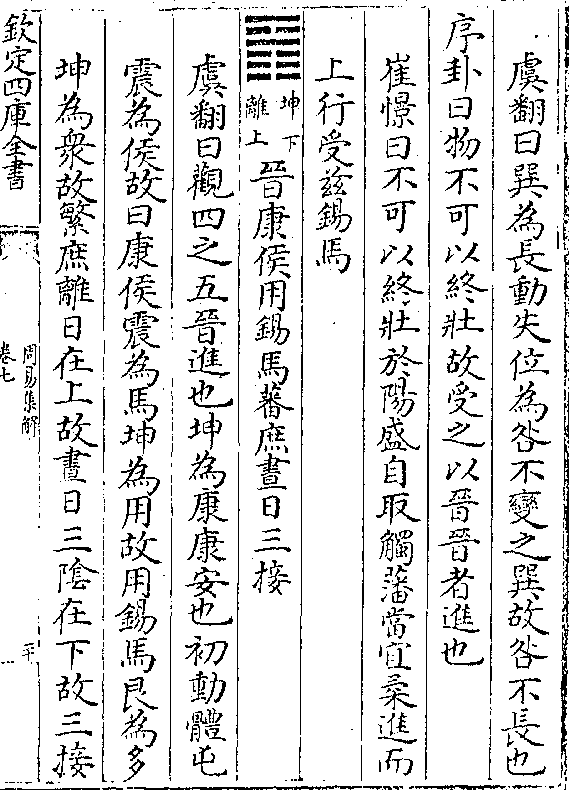 虞翻曰巽為長動失位為咎不變之巽故咎不長也
序卦曰物不可以終壯故受之以晉晉者進也
崔憬曰不可以終壯於陽盛自取觸藩當宜柔進而
上行受茲錫馬
坤下離上 晉康侯用錫馬蕃庶晝日三接
虞翻曰觀四之五晉進也坤為康康安也初動體屯
震為侯故曰康侯震為馬坤為用故用錫馬艮為多
坤為衆故繁庶離日在上故晝日三隂在下故三接
欽定四庫全書
周易集解
卷七